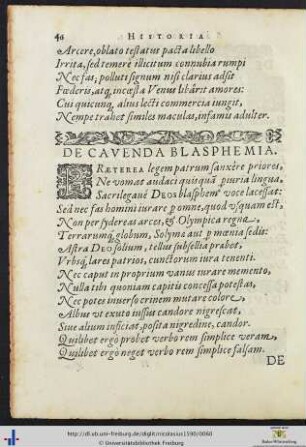 40 HISTORIA
Arcere, oblato testatus pacta libello
Irrita, sed temerè illicitum connubia rumpi
Nec fas, polluti signum nisi clarius adsit
Fœderis, atq; incesta Venus libârit amores:
Cui quicunq; alius lecti commercia iungit,
Nempe trahet similes maculas, infamis adulter.
DE CAVENDA BLASPHEMIA.
PRÆTEREA legem patrum sanxêre priores,
Ne vomat audaci quisquã piuria lingua,
Sacrilegaue DEOS blasphem⁹ voce lacessat:
Sed nec fas homini iurare p omne, quod vsquam est,
Non per sydereas arces, & Olympica regna,
Terrarumq; globum, Solyma aut p mœnia sedis:
Astra DEO solium, tellus subsellia prabet,
Vrbsq; lares patrios, cunctorum iura tenenti.
Nec caput in proprium vanus iurare memento,
Nulla tibi quoniam capitis concessa potestas,
Nec potes inuerso crinem mutare colore,
Albus vt exuto iussus candore nigrescat,
Siue alium inficiat, posita nigredine, candor.
Quilibet ergo probet verbo rem simplice veram,
Quilibet ergo neget verbo rem simplice falsam.
DE
http://dl.ub.uni-freiburg.de/diglit/nicolausius1590/0060
© Universitätsbibliothek Freiburg
Baden-Württemberg